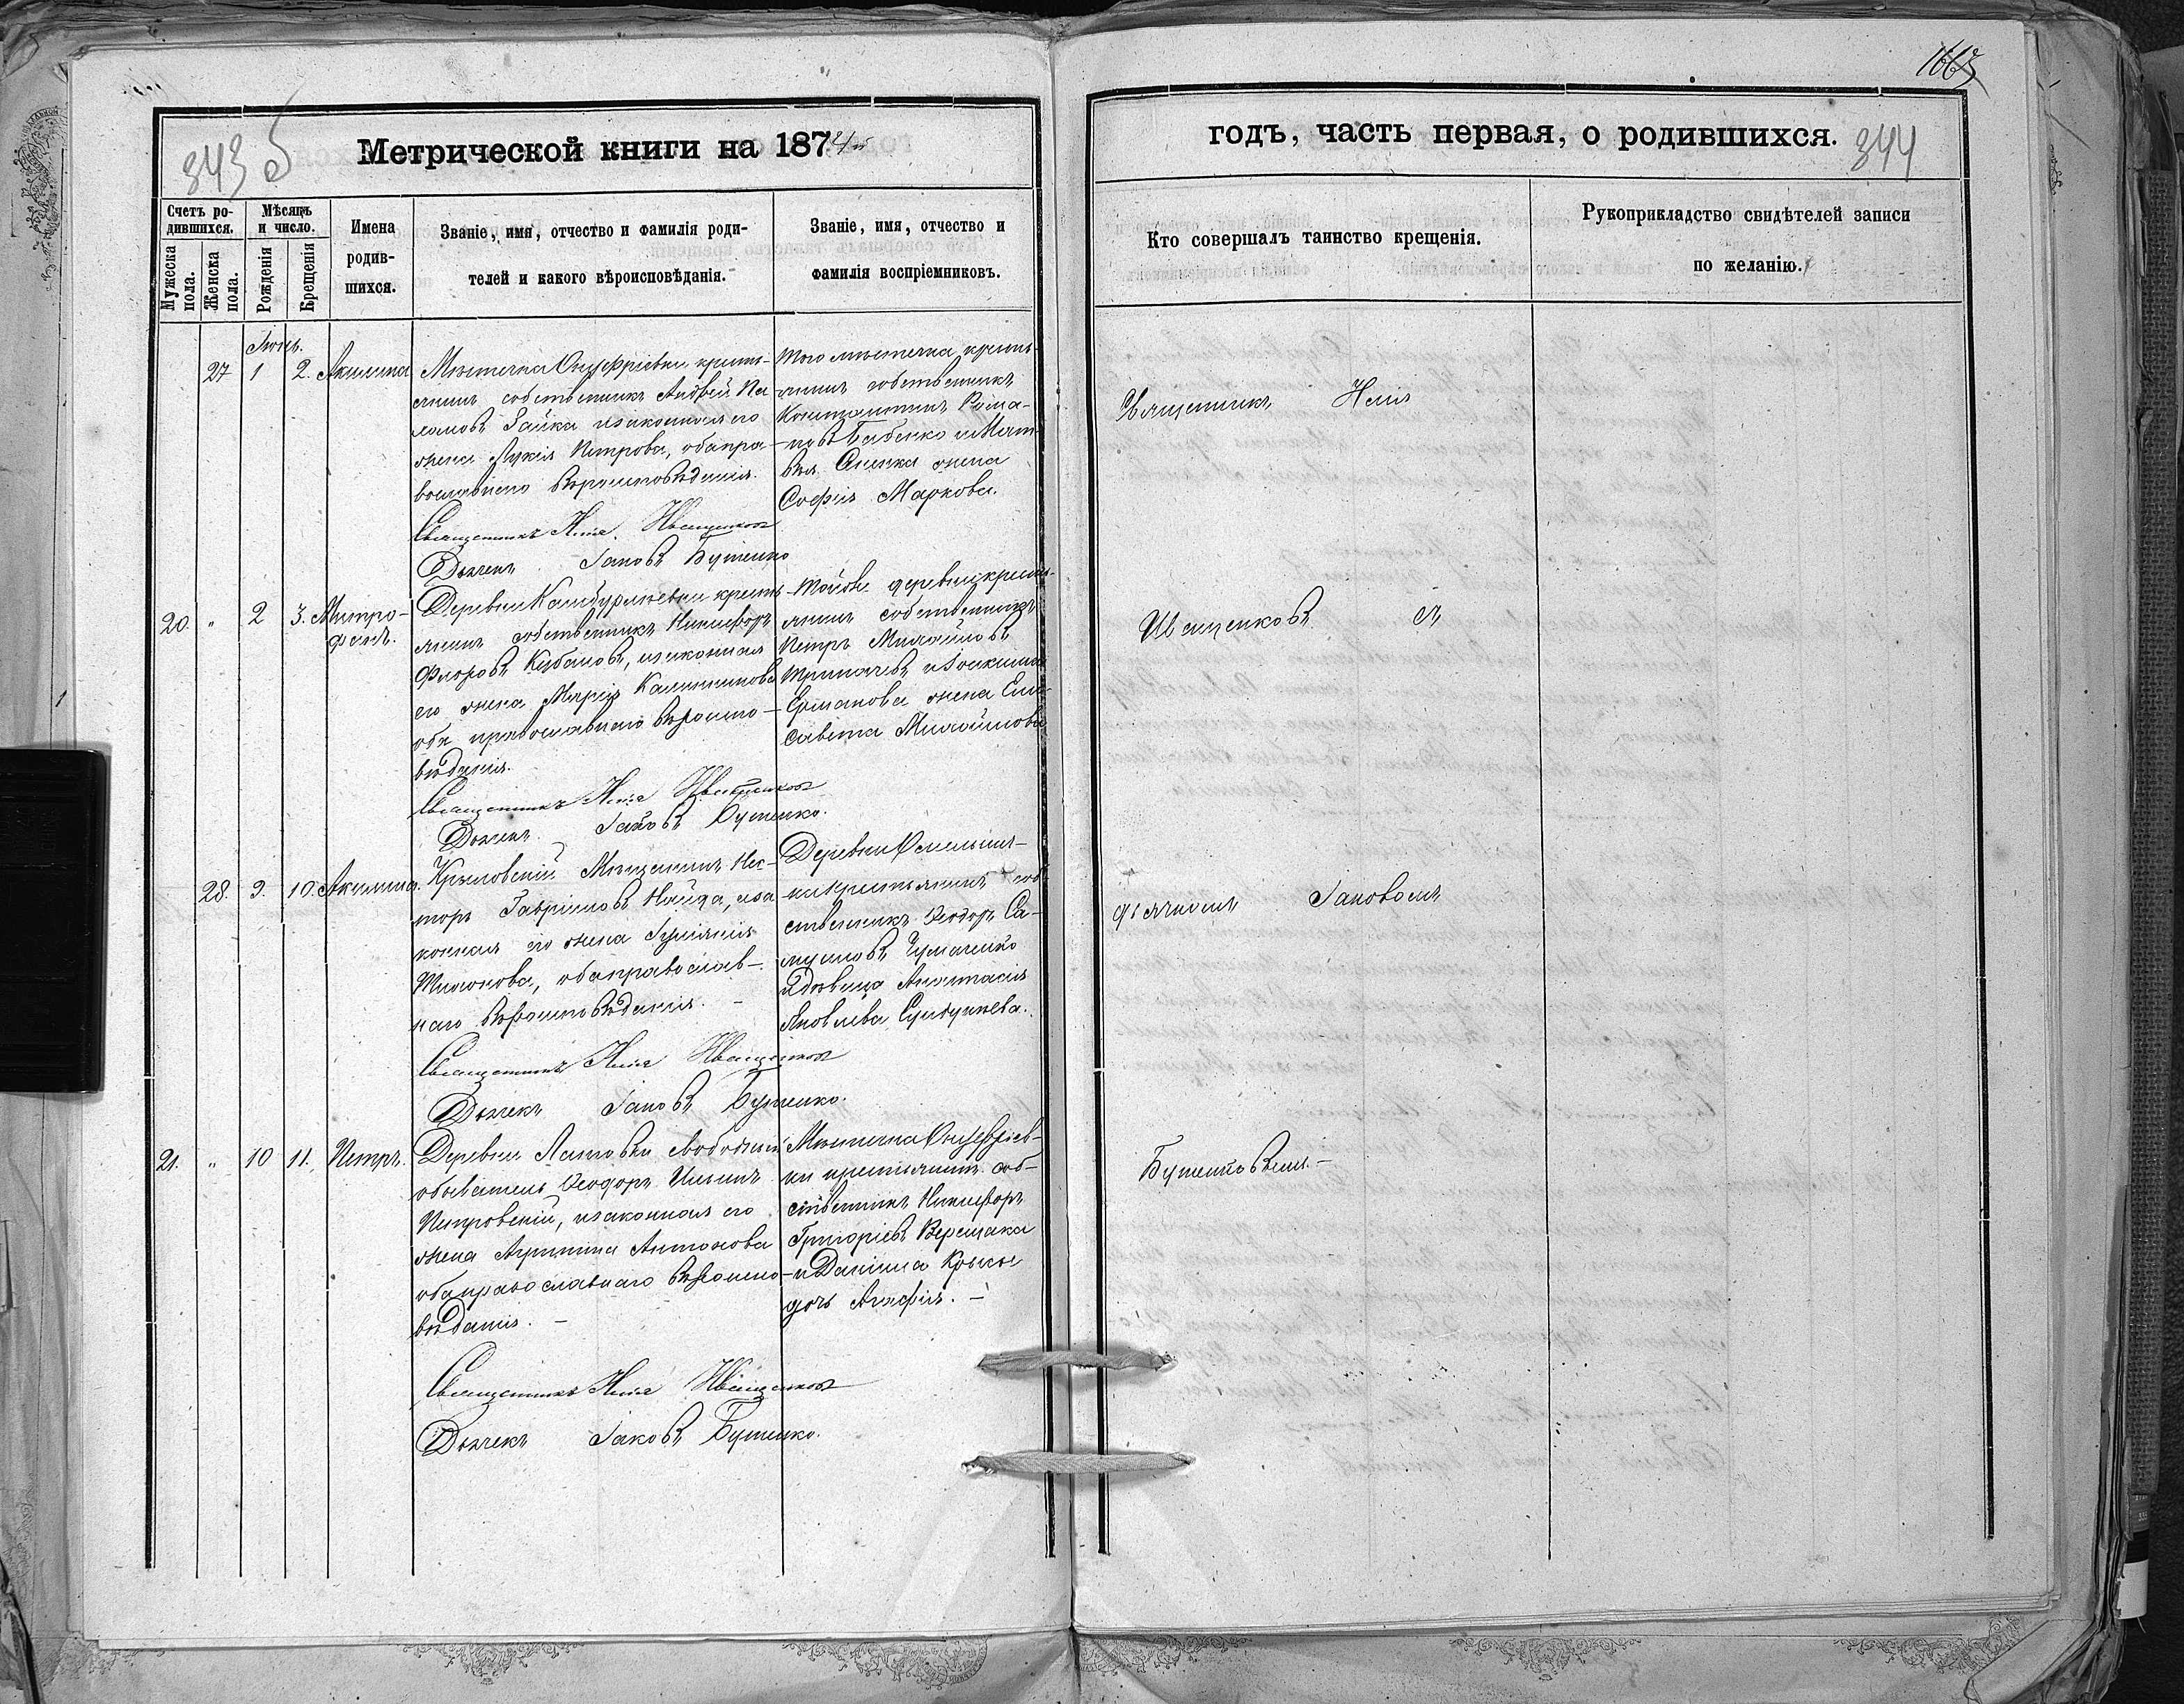 343 б
Метрической книги на 1874й
Счетъ ро-
дившихся.
Мужеска
пола.
Женска
пола.
Мѣсяцъ
и число.
Рожденія
Крещенія
Имена
родив-
шихся.
Званіе, имя, отчество и фамилія роди-
телей и какого вѣроисповѣданія.
Званіе, имя, отчество и
фамилія воспріемниковъ.
27
1
2.
Акилина
Мѣстечка Онуфріевки кресть-
янинъ собственникъ Андрей Па
Гайка изаконная его
жена Лукія Петрова, обапра-
вославнаго Вѣроисповѣданія.
Священникъ Илія Иващенковъ
Дьячекъ Іаковъ Бутенко
Того мѣстечка кресть-
янинъ собственникъ
Константинъ Рома-
новъ Бабенко и Мат-
вѣя жена
Софія Маркова.
20.
"
2
3.
Митро-
фанъ.
Деревни Камбурлѣевки кресть
янинъ собственникъ Никифоръ
Флоровъ, изаконная
его жена Марія Калинникова
оба православнаго Вѣроиспо-
вѣданія.
Священникъ Илія Иващенковъ
Дьячекъ Іаковъ Бутенко.
Тойже деревни кресть-
янинъ собственникъ
Петръ Михайловъ
иІоакима
Ермакова жена Ели-
савета Михайлова
28.
9.
10.
Акилина.
Крыловскій Мѣщанинъ Нес-
торъ Гавриловъ Найда, иза
конная его жена Іуліанія
Тихонова, обаправослав-
наго Вѣроисповѣданія. -
Священникъ Илія Иващенковъ
Дьячекъ Іаковъ Бутенко.
Деревни
крестьянинъ соб
ственникъ Феодоръ Са-
муиловъ Чумаченко
ивдовица Анастасія
Яковлева
21.
"
10
11.
Петръ.
Деревни свободный
обыватель Феодоръ Ильинъ
Петровскій, изаконная его
жена Агрипина Антонова
обаправославнаго Вѣроиспо-
вѣданія. -
Священникъ Илія Иващенковъ
Дьячекъ Іаковъ Бутенко.
Мѣстечка Онуфріев-
ки крестьянинъ соб-
ственникъ Никифоръ
Григоріевъ Верещака
иДаніила
дочь Агафія. -
годъ, часть первая, о родившихся.
344
Кто совершалъ таинство крещенія.
Рукоприкладство свидѣтелей записи
по желанію.
Священникъ Илія
Иващенковъ съ
дьячкомъ Іаковомъ
Бутенковымъ. -